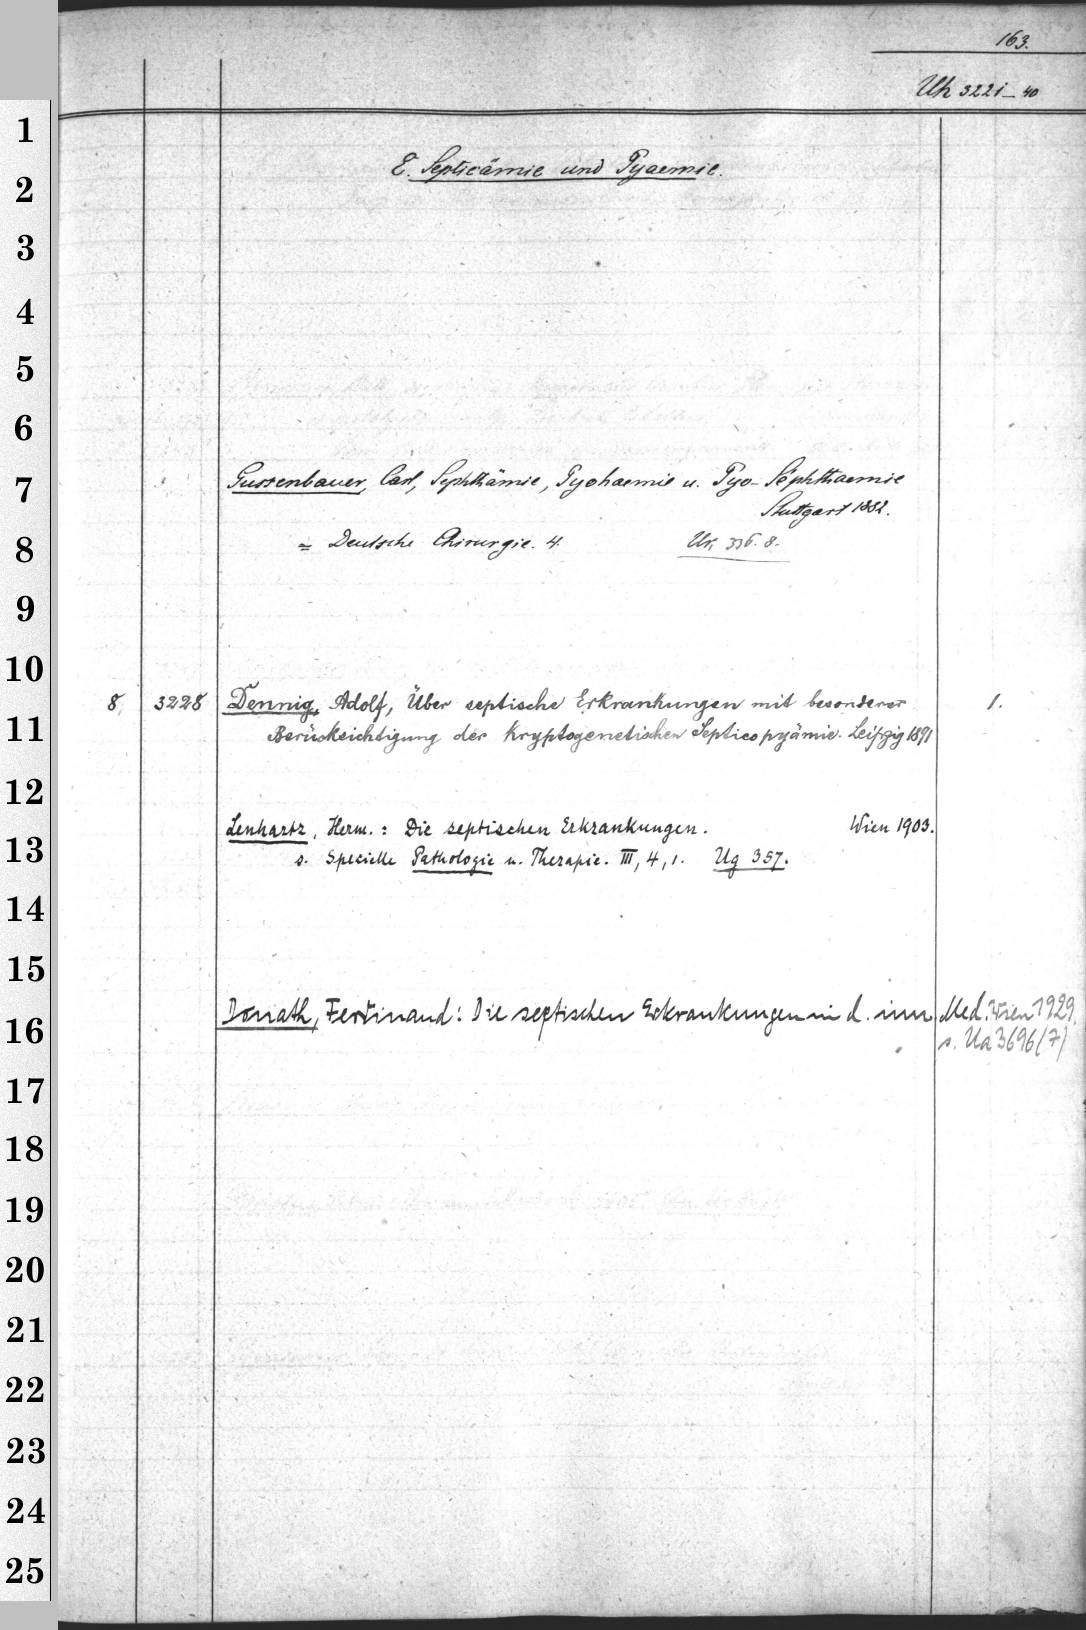 163.
Uh 3221-40
E. Septicämie und Pyaemie.
Gussenbauer, Carl, Sephthämie, Pyohaemie u. Pyo-Sephthaemie
Stuttgart 1882.
= Deutsche Chirurgie. 4. Ur, 336. 8.
8, 3228 Dennig, Adolf, Über septische Erkrankungen mit besonderer 1.
Berücksichtigung der kryptogenetischen Septicopyämie. Leipzig 1891
Lenhartz, Herm.: Die septischen Erkrankungen. Wien 1903.
s. Specielle Pathologie u. Therapie. III, 4, 1. Ug 357.
Donath, Ferdinand: Die septischen Erkrankungen in d. inn. Med. Wien 1929.
s. Ua 3696/7)
1
2
3
4
5
6
7
8
9
10
11
12
13
14
15
16
17
18
19
20
21
22
23
24
25